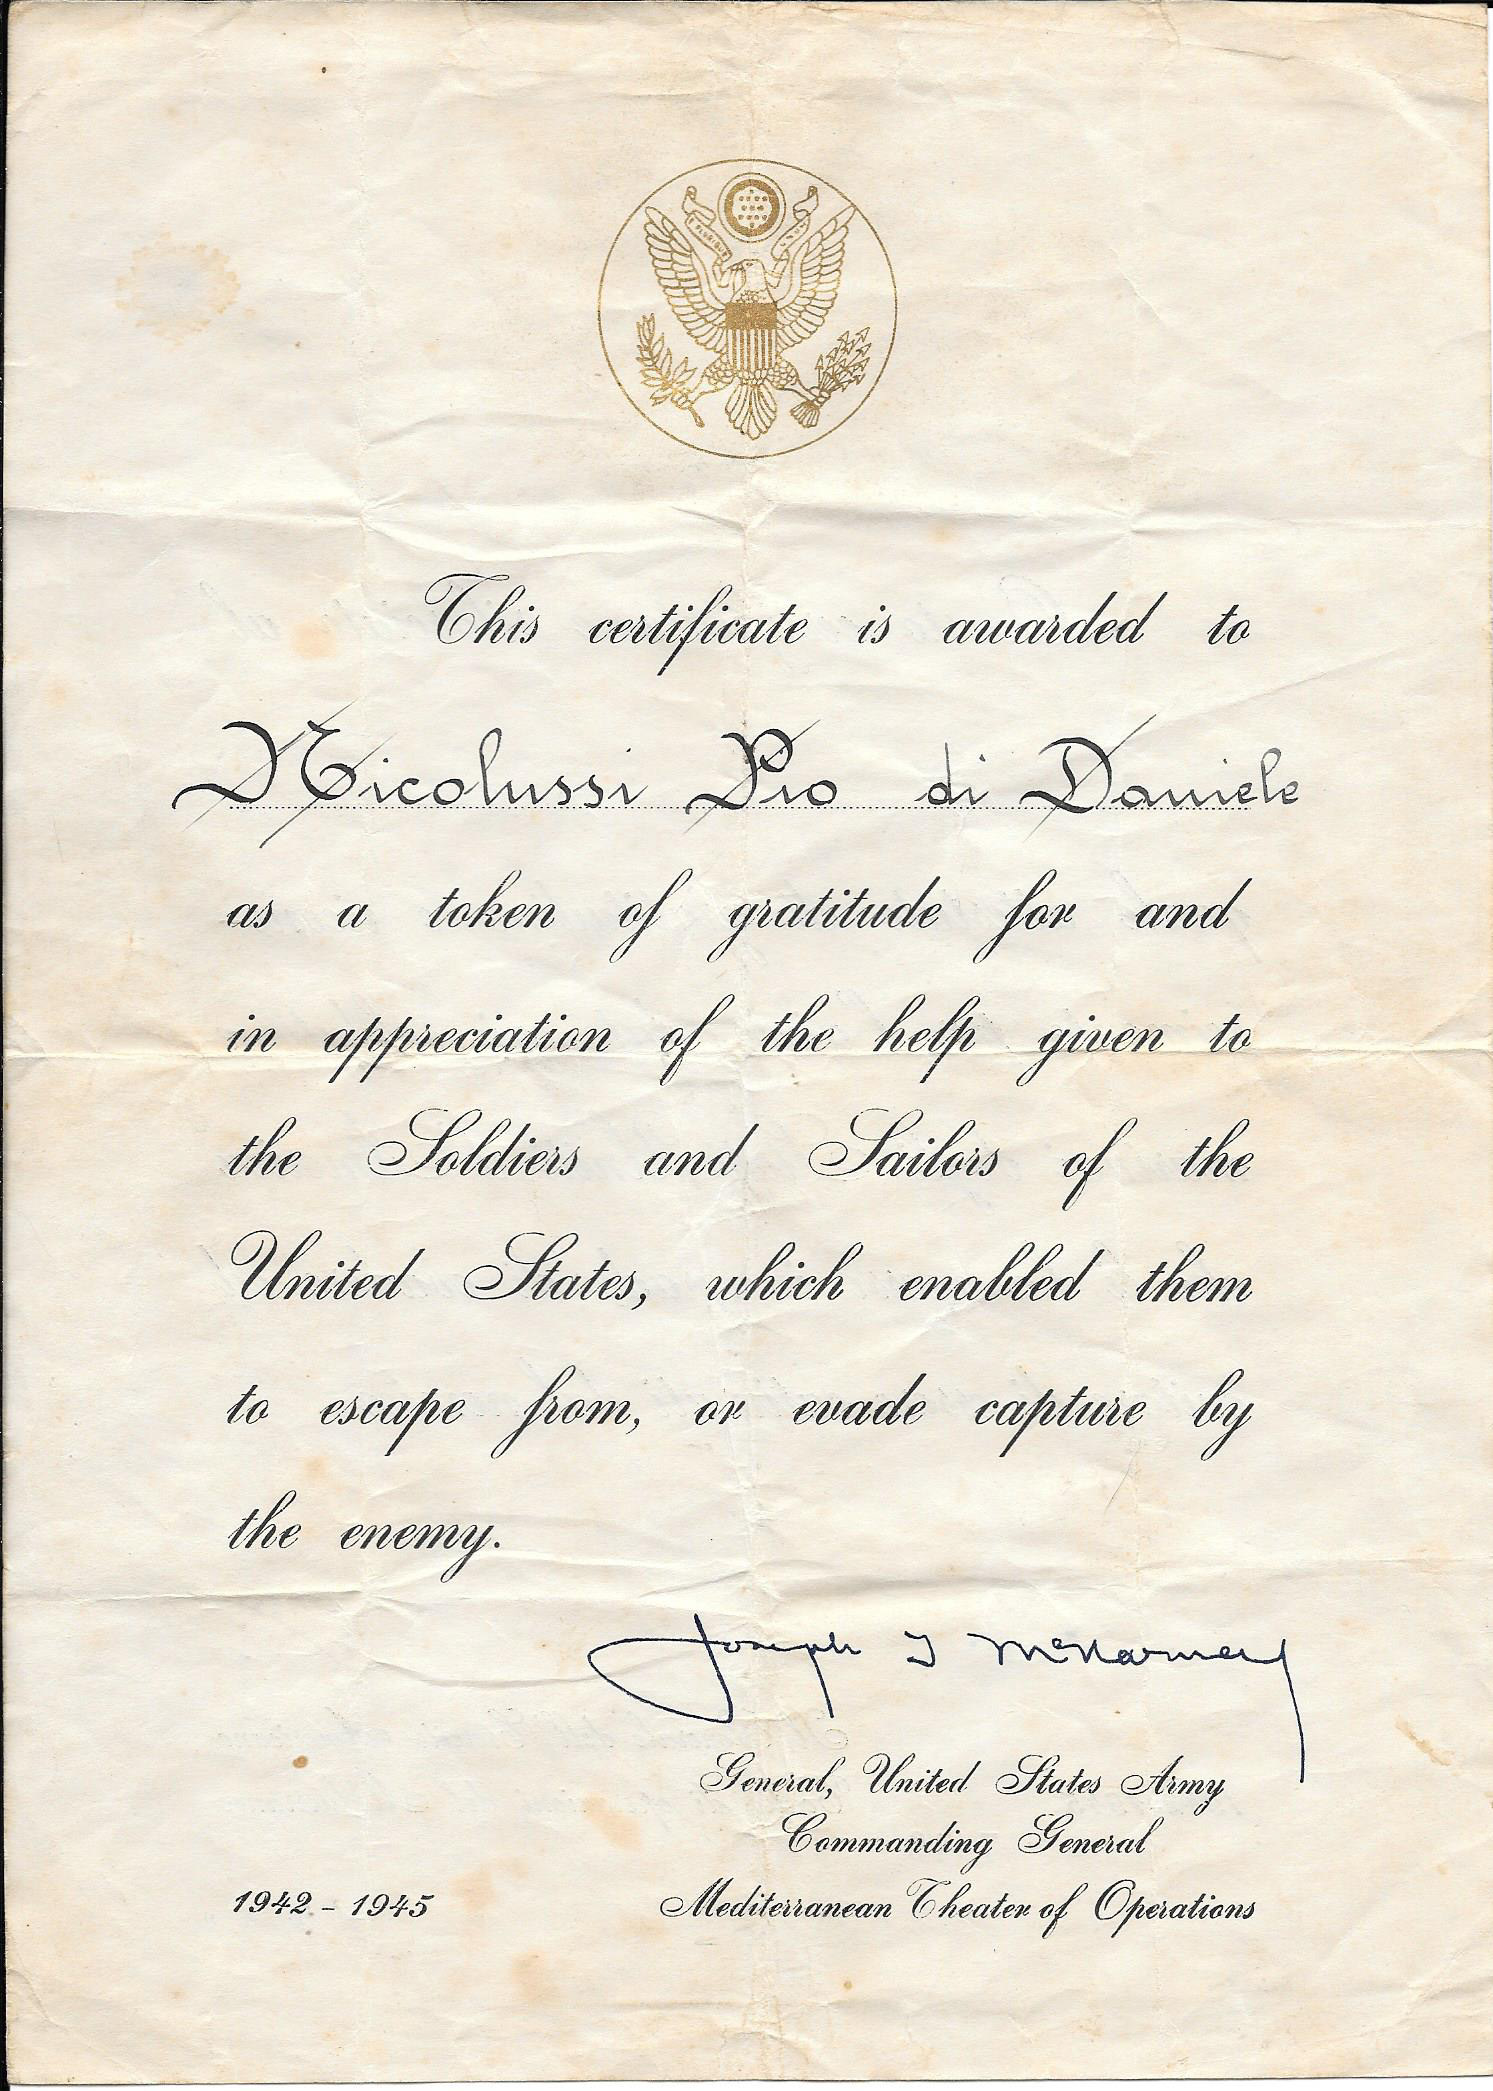 E PLURIBUS
This certificate is awarded to
Nicolussi Pio di Daniele
as a token of gratitude for and
in appreciation of the help given to
the Soldiers and Sailors of the
United States, which enabled them
to escape from, or evade capture by
the enemy.
Joseph T McNarney
General, United States Army
Commanding General
Mediterranean Theater of Operations
1942 - 1945